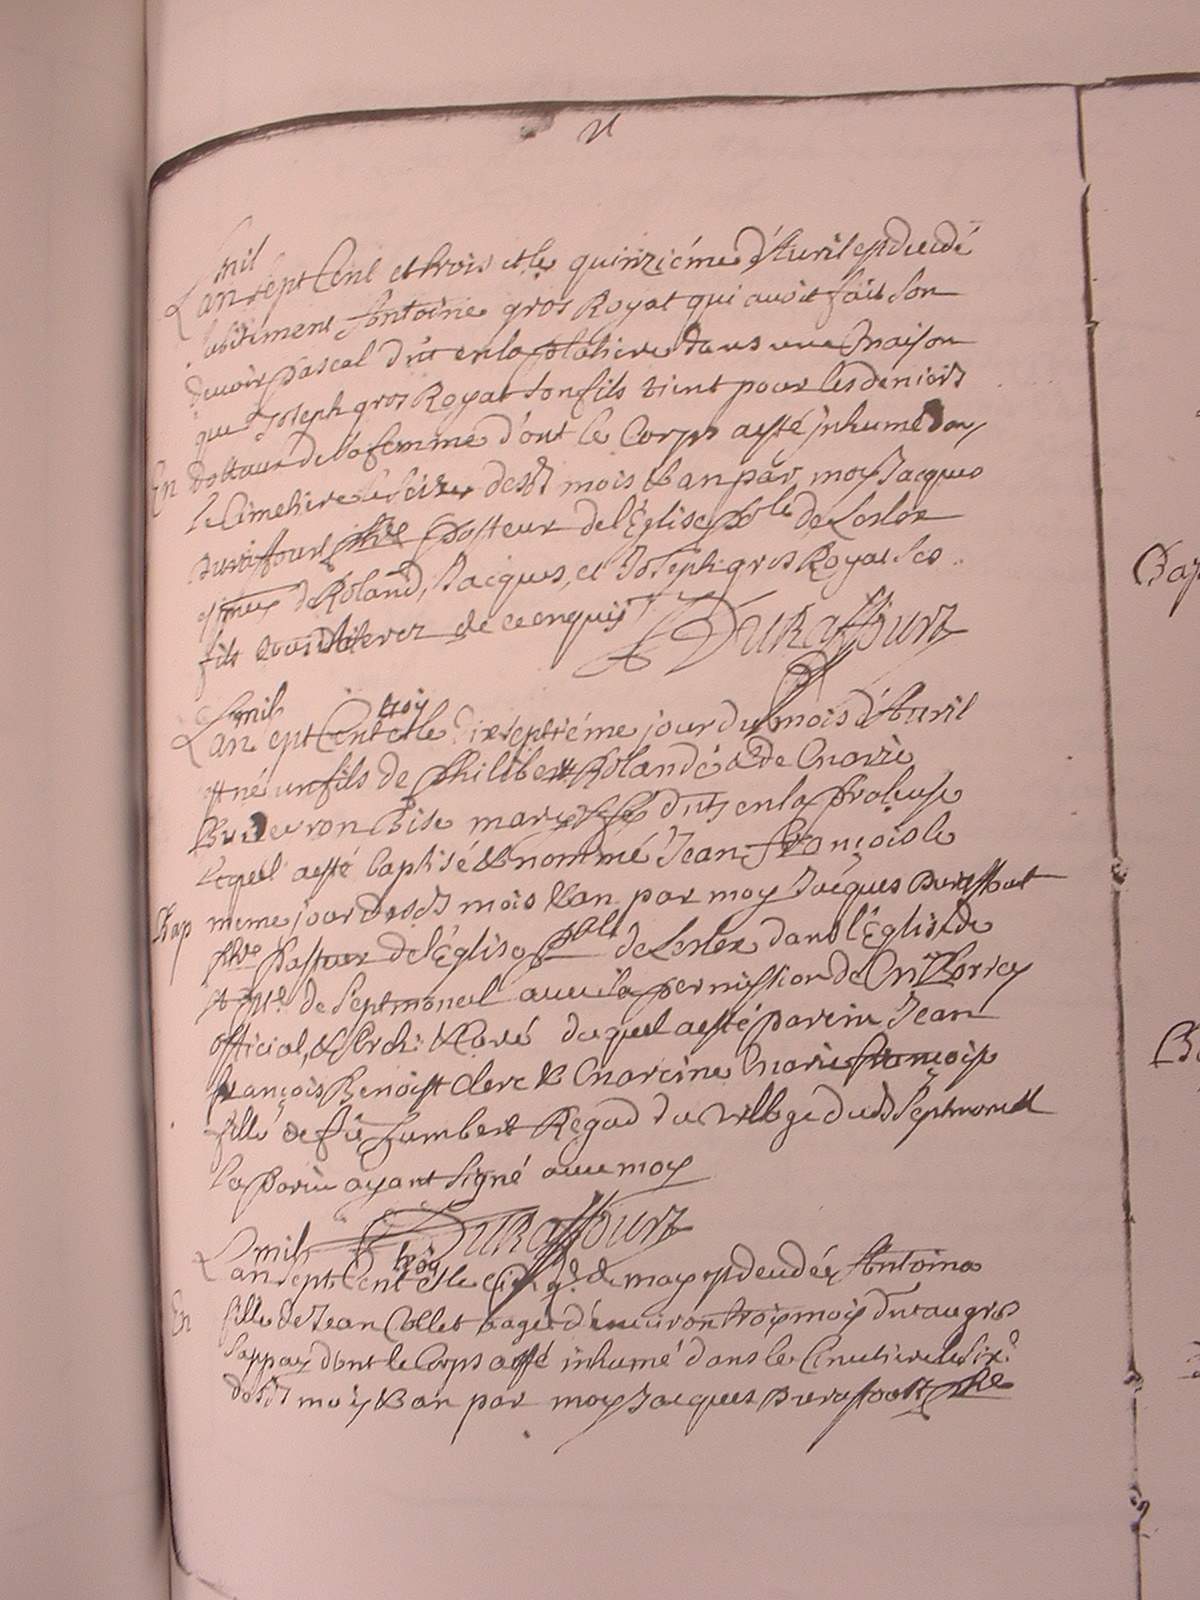 mil
L'an sept Cent et trois et le quinziéme d'Avril est decedé
subitiment Antoine gros Royat qui avoit fait son
devoir pascal dut en la platiere dans une maison
que Joseph gros Royat son fils tient pour les deniers
En dottaux de sa femme d'ont le Corps a esté inhumé dans
le Cimetiere le seize desdt mois & an par moy Jacques
Duraffourt pbre pasteur de l'Eglise de
de Roland, Jacques, et Joseph gros Royat ses
fils de ce enquis J Duraffourt
mil troy
L'an sept Cent et le dixseptiéme jour du mois d'Avril
est né un fils de philibert Rolandé & de Marie
Bise mariés duts en la
lequel a esté baptisé & nommé Jean françois le
Bap meme jour desdt mois & an par moy Jacques Duraffourt
pbre pasteur de l'Eglise de dans l'Eglise de
de Septmoncel avec la permission de Mr
official, & Curé duquel a esté parin Jean
françois Benoist Clerc & Mareine Marie françoise
fille de fû humbert Regad du village dudt Septmoncel
le Parin ayant signé avec moy
Duraffourt
mil troy
L'an sept Cent et le de may est decedée Antoina
En fille de Jean Collet aagée d'environ trois mois
dont le Corps a esté inhumé dans le Cimetiere le six
desdt moy & an par moy Jacques Duraffourt pbre
Bap